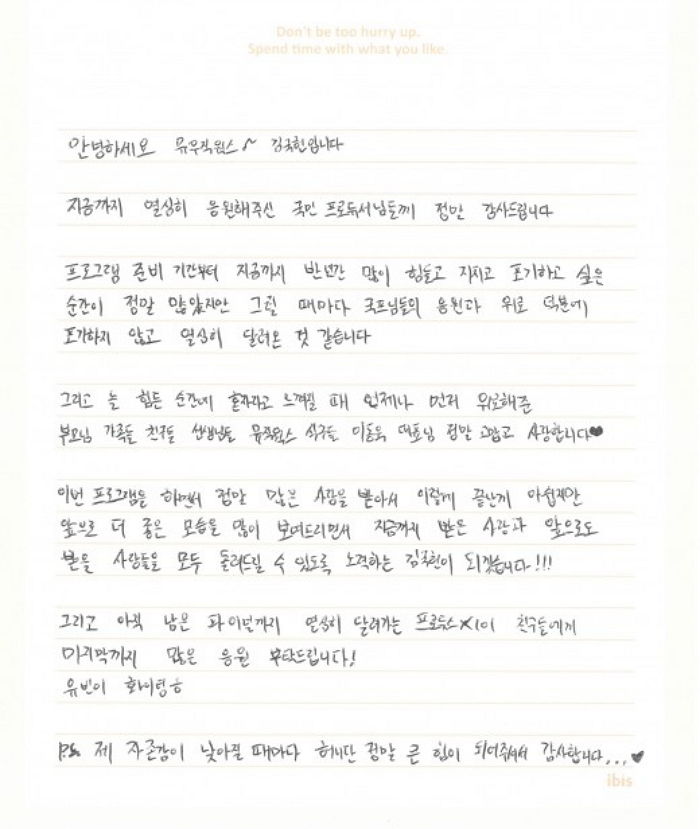 Don't be too hurry up.
Spend time with what you like
안녕하세요 뮤우직웍스~ 김국헌입니다
지금까지 열심히 응원해주신 국민 프로듀서님들께 정말 감사드립니다
프로그램 준비 기간부터 지금까지 반년간 많이 힘들고 지치고 포기하고 싶은
순간이 정말 많았지만 그럴 때마다 국프님들의 응원과 위로 덕분에
포기하지 않고 열심히 달려온 것 같습니다
그리고 늘 힘든 순간에 혼자라고 느껴질 때 언제나 먼저 위로해준
부모님 가족들 친구들 선생님들 뮤직웍스 식구들 이동욱 대표님 정말 고맙고 사랑합니다♥
이번 프로그램을 하면서 정말 많은 사랑을 받아서 이렇게 끝난게 아쉽지만
앞으로 더 좋은 모습을 많이 보여드리면서 지금까지 받은 사랑과 앞으로도
받을 사랑들을 모두 돌려드릴 수 있도록 노력하는 김국헌이 되겠습니다!!!
그리고 아직 남은 파이널까지 열심히 달려가는 프로듀스X101 친구들에게
마지막까지 많은 응원 부탁드립니다!
유빈이 화이팅ㅎ
P.s 제 자존감이 낮아질 때마다 허니단 정말 큰 힘이 되어주셔서 감사합니다...♥
ibis